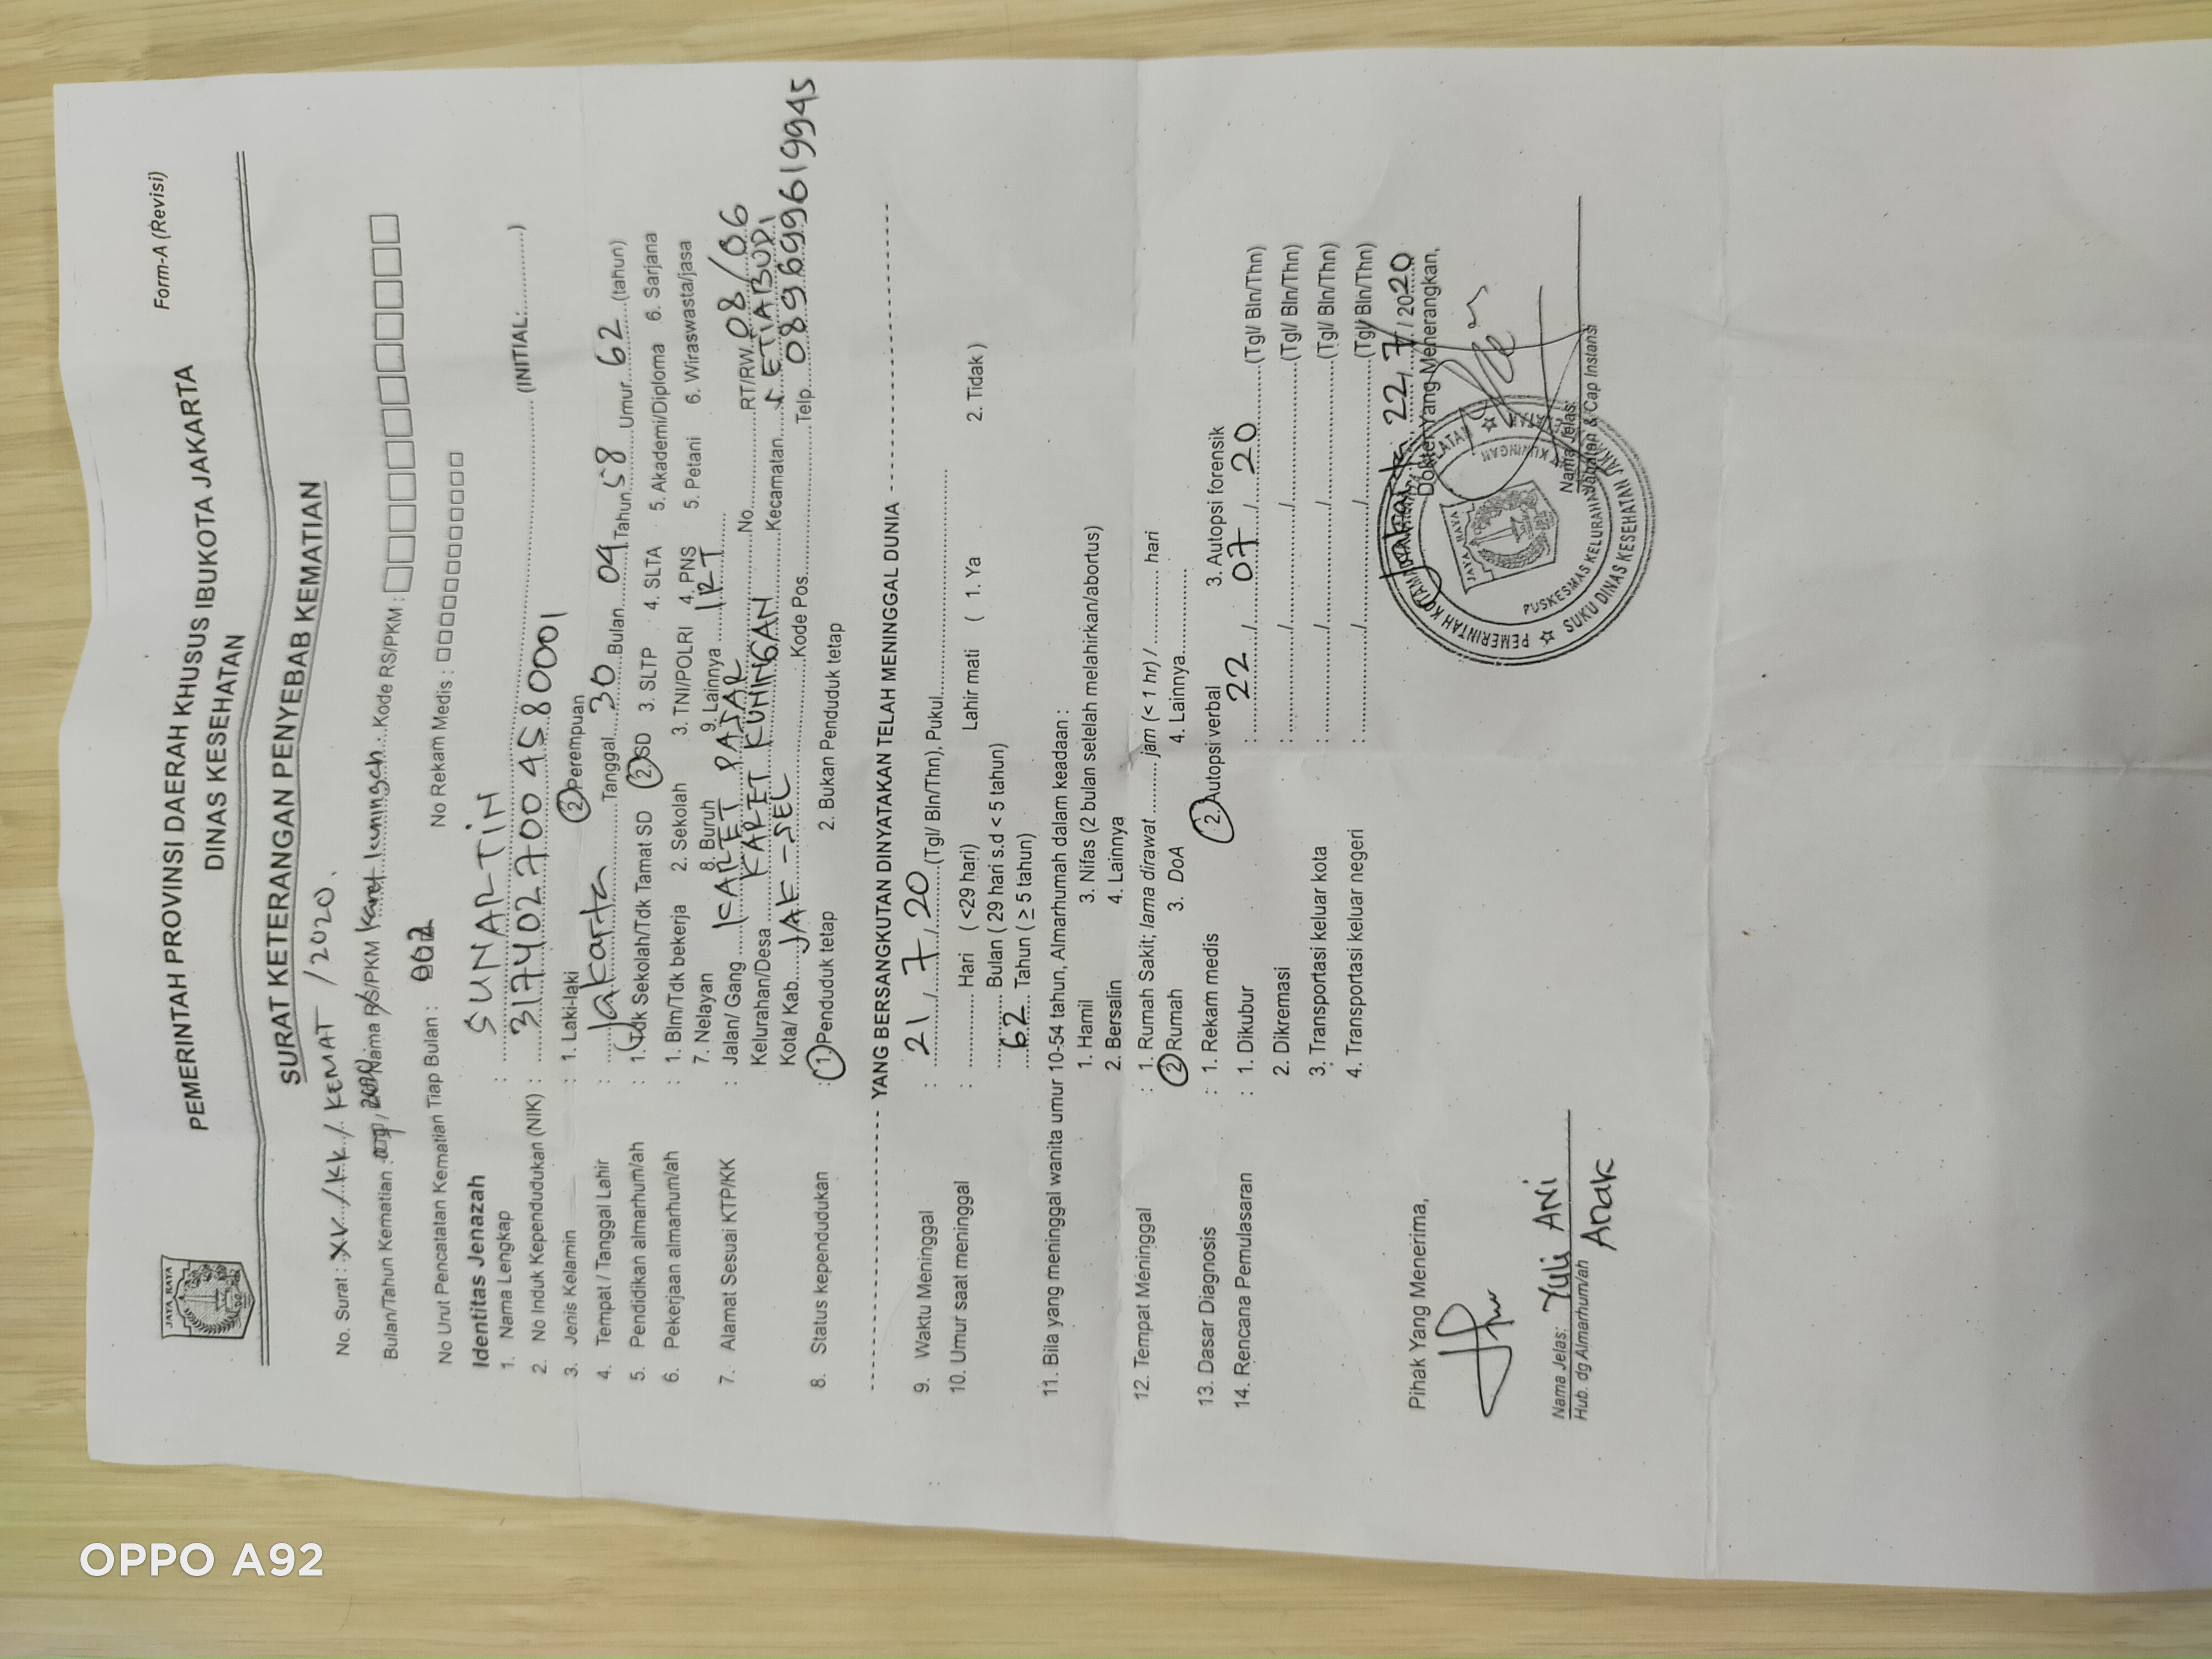 Form-A (Revisi)
JAYA RAYA
PEMERINTAH PROVINSI DAERAH KHUSUS IBUKOTA JAKARTA
DINAS KESEHATAN
SURAT KETERANGAN PENYEBAB KEMATIAN
No. Surat : XV /KK/ KEMAT /2020.
Bulan/Tahun Kematian : Nama RS/PKM Karet kuningan Kode RS/PKM :
No Urut Pencatatan Kematian Tiap Bulan : No Rekam Medis :
Identitas Jenazah
1. Nama Lengkap : SUNARTIN (INITIAL:..........)
2. No Induk Kependudukan (NIK) : 3174027004580001
3. Jenis Kelamin : 1. Laki-laki 2. Perempuan
4. Tempat / Tanggal Lahir : Jakarta Tanggal 30 Bulan 04 Tahun 58 Umur 62 (tahun)
5. Pendidikan almarhum/ah : 1. Tdk Sekolah/Tdk Tamat SD 2. SD 3. SLTP 4. SLTA 5. Akademi/Diploma 6. Sarjana
6. Pekerjaan almarhum/ah : 1. Blm/Tdk bekerja 2. Sekolah 3. TNI/POLRI 4. PNS 5. Petani 6. Wiraswasta/jasa
7. Nelayan 8. Buruh 9. Lainnya IRT
7. Alamat Sesuai KTP/KK : Jalan/ Gang KARET PASAR No. RT/RW 08/06
Kelurahan/Desa KARET KUNINGAN Kecamatan SETIABUDI
Kota/ Kab. JAK-SEL Kode Pos Telp. 089699619945
8. Status kependudukan : 1. Penduduk tetap 2. Bukan Penduduk tetap
YANG BERSANGKUTAN DINYATAKAN TELAH MENINGGAL DUNIA
9. Waktu Meninggal : 21 / 7 / 20 (Tgl/ Bln/Thn), Pukul
10. Umur saat meninggal : Hari ( <29 hari) Lahir mati ( 1. Ya 2. Tidak )
Bulan ( 29 hari s.d < 5 tahun)
62 Tahun ( ≥ 5 tahun)
11. Bila yang meninggal wanita umur 10-54 tahun, Almarhumah dalam keadaan :
1. Hamil 3. Nifas (2 bulan setelah melahirkan/abortus)
2. Bersalin 4. Lainnya
12. Tempat Meninggal : 1. Rumah Sakit; lama dirawat .......... jam (< 1 hr) / .......... hari
2. Rumah 3. DoA 4. Lainnya
13. Dasar Diagnosis : 1. Rekam medis 2. Autopsi verbal 3. Autopsi forensik
14. Rencana Pemulasaran : 1. Dikubur : 22 / 07 / 20 (Tgl/ Bln/Thn)
2. Dikremasi : / / (Tgl/ Bln/Thn)
3. Transportasi keluar kota : / / (Tgl/ Bln/Thn)
4. Transportasi keluar negeri : / / (Tgl/ Bln/Thn)
Jakarta, 22 / 7 / 2020
Pihak Yang Menerima, Dokter Yang Menerangkan,
JAYA RAYA
PUSKESMAS KELURAHAN KARET KUNINGAN
SUKU DINAS KESEHATAN
Nama Jelas: Yuli ANi
Hub. dg Almarhum/ah Anak
Nama Jelas:
Jabatan & Cap Instansi
OPPO A92